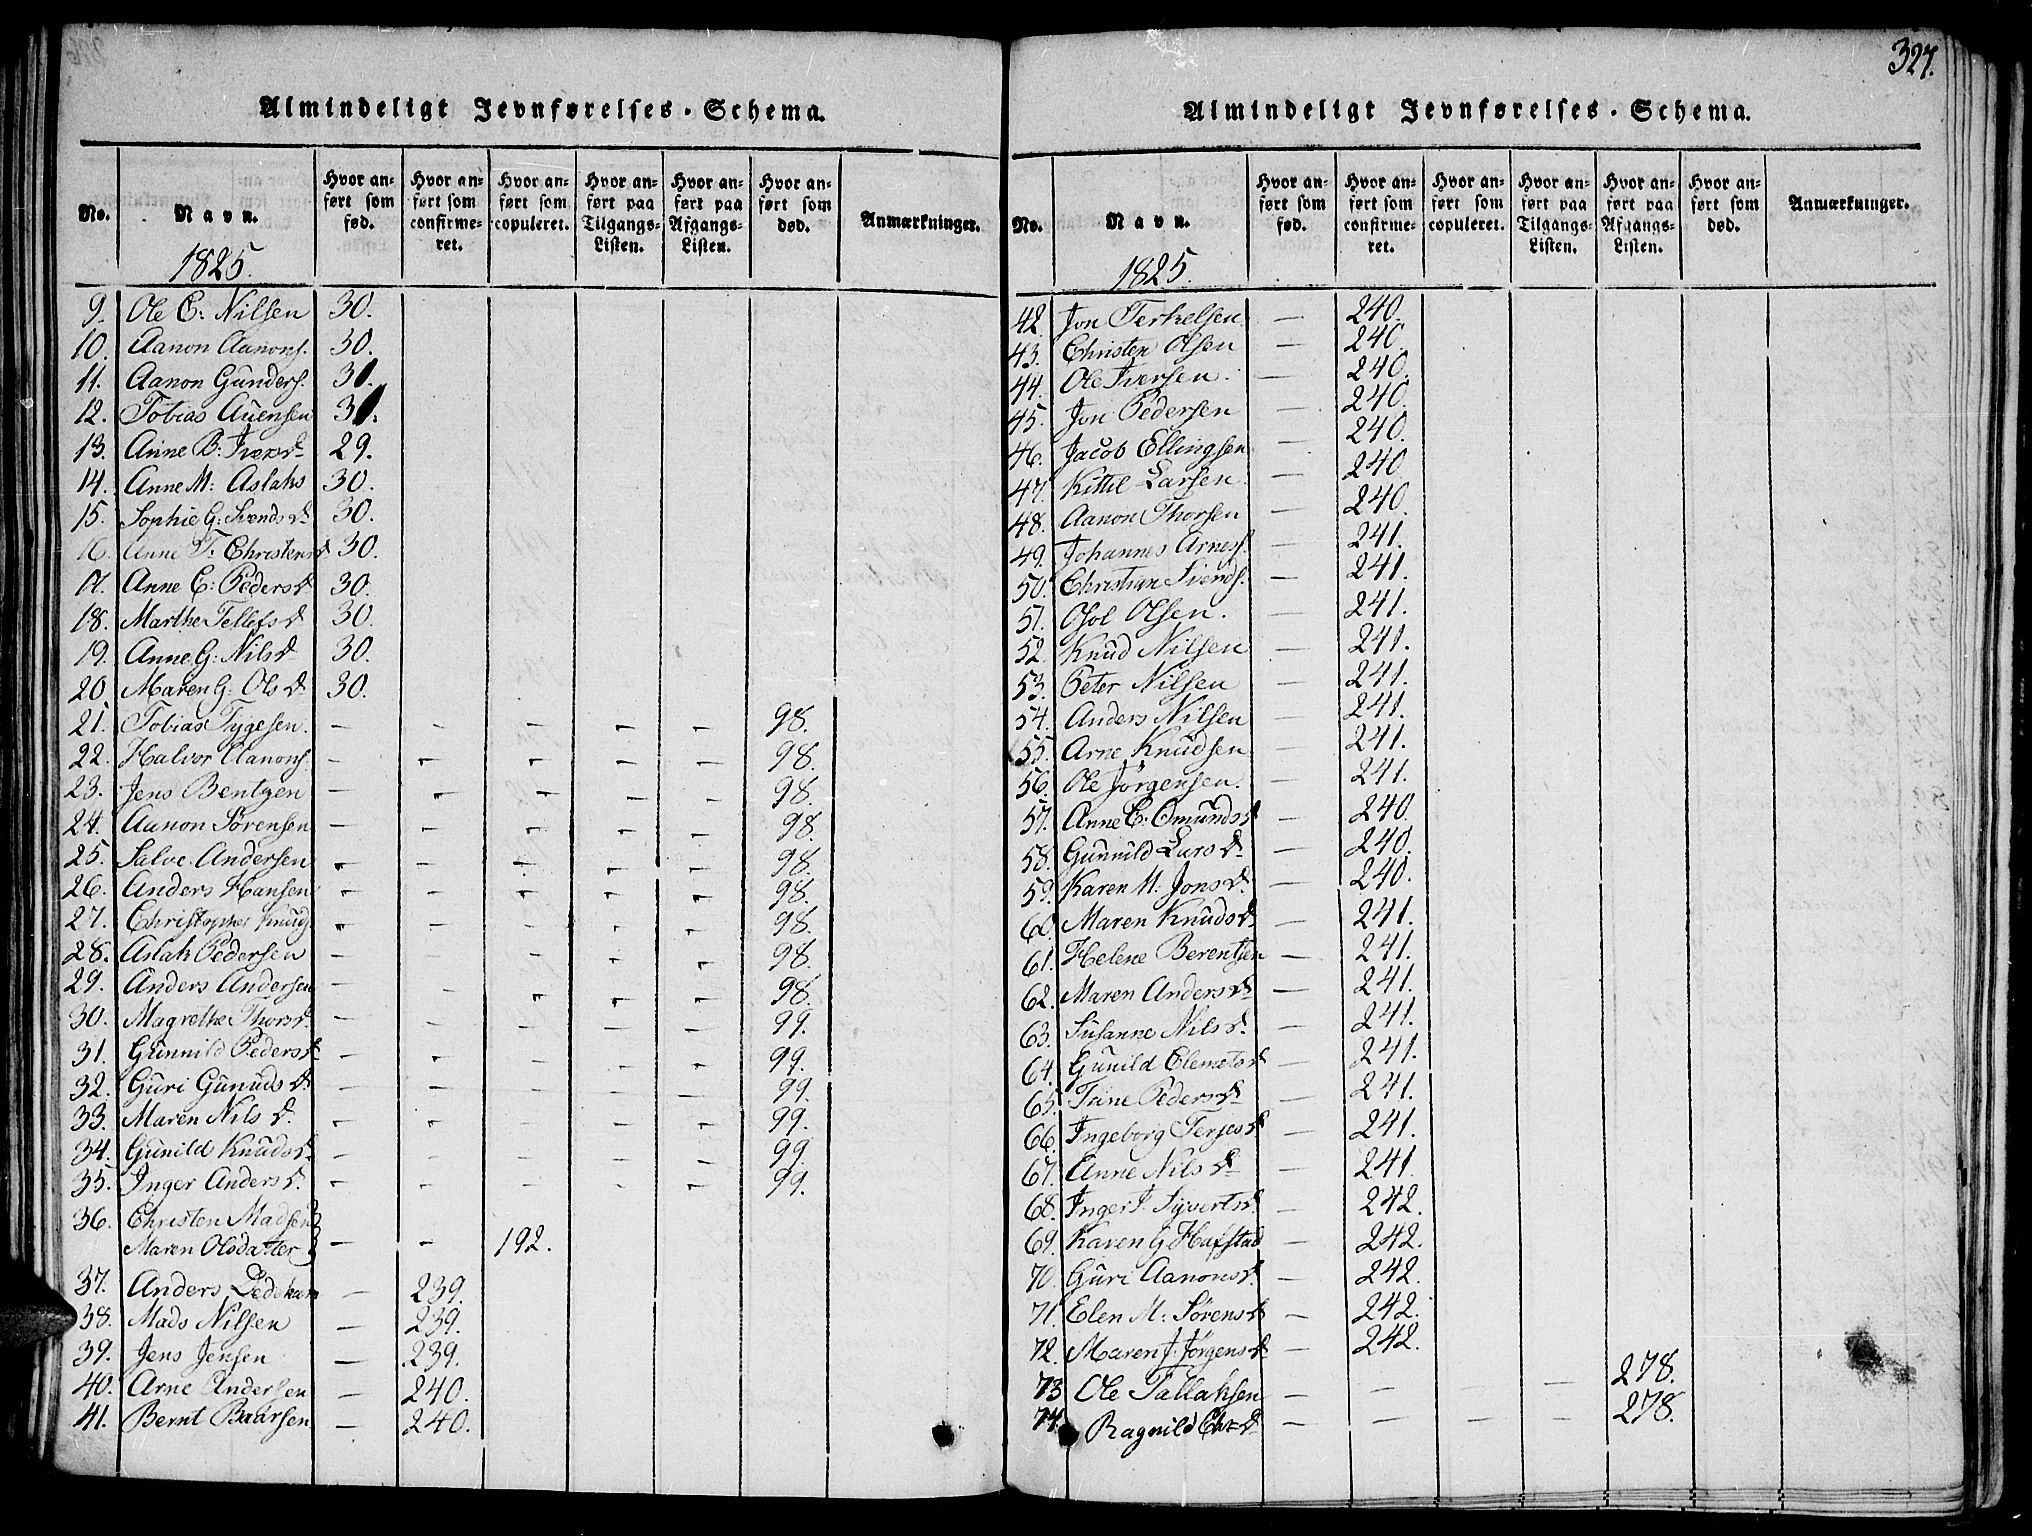 Almindeligt Jevnførelses-Schema.
No. Navn. Hvor anført som fød. Hvor anført som confirmeret. Hvor anført som copuleret. Hvor anført paa Tilgangs-Listen. Hvor anført paa Afgangs-Listen. Hvor anført som død. Anmærkninger.
1825.
9. Ole C: Nilsen 30.
10. Aanon Aanons. 30.
11. Aanon Gunders. 31.
12. Tobias Auensen 31.
13. Anne B: Iversd. 29.
14. Anne M: Aslaks 30.
15. Sophie G: Svendsd. 30.
16. Anne T: Christensd 30.
17. Anne C: Pedersd. 30.
18. Marthe Tellefsd. 30.
19. Anne G: Nilsd. 30.
20. Maren G: Olsd. 30.
21. Tobias Tygesen. - - - - - 98.
22. Halvor Aanons. - - - - - 98.
23. Jens Bentzen - - - - - 98.
24. Aanon Sörensen - - - - - 98.
25. Salve Andersen - - - - - 98.
26. Anders Hansen - - - - - 98.
27. Christopher Knuds. - - - - - 98.
28. Aslak Pedersen - - - - - 98.
29. Anders Andersen - - - - - 98.
30. Magrethe Thorsd. - - - - - 99.
31. Gunnild Pedersd. - - - - - 99.
32. Guri Gunudsd. - - - - - 99.
33. Maren Nilsd. - - - - - 99.
34. Gunild Knudsd. - - - - - 99.
35. Inger Andersd. - - - - - 99.
36. Christen Madsen
Maren Olsdatter - - 192.
37. Anders - 239.
38. Mads Nilsen - 239.
39. Jens Jensen - 239.
40. Arne Andersen - 240.
41. Bernt Baarsen - 240.
327.
Almindeligt Jevnførelses-Schema.
No. Navn. Hvor anført som fød. Hvor anført som confirmeret. Hvor anført som copuleret. Hvor anført paa Tilgangs-Listen. Hvor anført paa Afgangs-Listen. Hvor anført som død. Anmærkninger.
1825.
42. Jon Terkelsen - 240.
43. Christen Olsen - 240.
44. Ole Iversen. - 240.
45. Jon Pedersen - 240.
46. Jacob Ellingsen - 240.
47. Kittil Larsen - 240.
48. Aanon Thorsen - 240.
49. Johannes Arnes. - 241.
50. Christian Svends. - 241.
51. Osol Olsen. - 241.
52. Knud Nilsen - 241.
53. Peter Nilsen - 241.
54. Anders Nilsen - 241.
55. Arne Knudsen - 241.
56. Ole Jörgensen. - 241.
57. Anne C: Omundsd - 240.
58. Gunnild Larsd. - 240.
59. Karen M: Jonsd. - 240.
60. Maren Knudsd. - 241.
61. Helene Berentsen - 241.
62. Maren Andersd. - 241.
63. Susanne Nilsd. - 241.
64. Gunild Clemetsd - 241.
65. Trine Pedersd. - 241.
66. Ingeborg Terjesd. - 241.
67. Anne Nilsd. - 241.
68. Inger J. Syvertsd. - 242.
69. Karen G Hafstad - 242.
70. Guri Aanonsd. - 242.
71. Elen M: Sörensd - 242.
72. Maren J. Jörgensd. - 242.
73 Ole Tallaksen - - - - 278.
74. Ragnild Chr.d. - - - - 278.